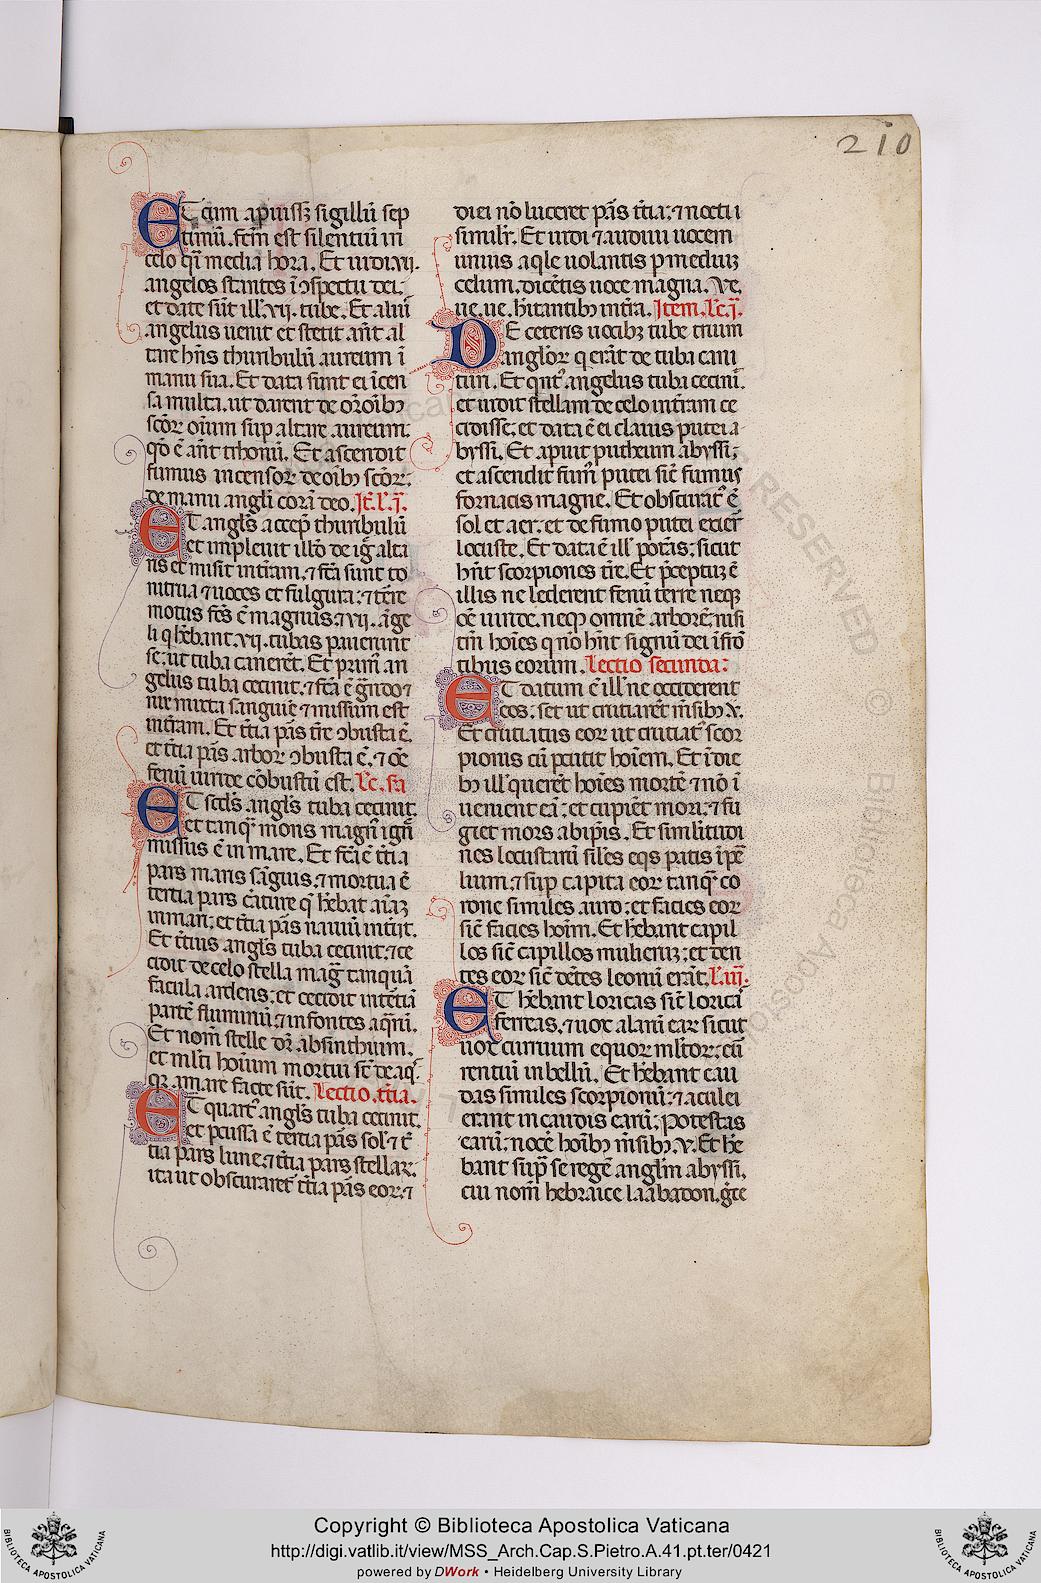 210
ET cum aꝑuiss; sigillū sep
timū. fcm̄ est silentiū in
celo qͣ̄ media hora. Et uidi .vii.
angelos stantes ī ɔspectu dei:
et date sūt ill̓ .vii. tube. Et aliꝰ
angelus uenit et stetit an̄t al
tare hn̄s thuribulū aureum ī
manu sua. Et data sunt ei īcen
sa multa. ut daret de or̄oībꝫ
sc̄oꝝ oīum suꝑ altare aureum:
qd̓ ē an̄t thronū. Et ascendit
fumus incensoꝝ de oībꝫ sc̄oꝝ:
de manu angl̓i corā deo. It̄. l̄. ī.
ET angl̓s acceꝑ thuribulū
et impleuit ill̓d de iḡ alta
ris et misit in t̄ram. ⁊ fc̄a sunt to
nitrua ⁊ uoces et fulgura: ⁊ t̄re
motus fc̄s ē magnus: ⁊ vii. āge
li q̓ hēbant .vii. tubas ꝑauerunt
se: ut tuba canerēt. Et primꝰ an
gelus tuba cecinit. ⁊ fc̄a ē gͣndo ⁊
nix mixta sanguīe ⁊ missum est
in t̄ram. Et t̄tia pͣs t̄re ɔbusta ē.
et t̄tia pͣs arboꝝ ɔbusta ē. ⁊ oē
fenū uiride cōbustū est. Lc̄. sa
ET scd̓s angl̓s tuba cecinit
et tanqͣ mons magnꝰ ignī
missus ē in mare. Et fc̄a ē t̄tia
pars maris sāguis. ⁊ mortua ē
tertia pars c̄ature q̄ hēbat aīaꝫ
in mari: et t̄tia pͣs nauiū int̄iit.
Et t̄tius angl̓s tuba cecinit. ⁊ ce
cidit de celo stella magͣ tanquā
facula ardens: et cecidit in t̄tiā
partē fluminū. ⁊ in fontes aqͣꝝ.
Et nom̄ stelle dr̄ absinthium.
et ml̓ti hoīum mortui sc̄ de aqͥs
qꝛ amare facte sūt. Lectio. t̄tia.
ET quartꝰ angl̓s tuba cecinit.
et ꝑcussa ē tertia pͣs sol̓ ⁊ t̄
tia pars lune. ⁊ t̄tia pars stellaꝝ.
ita ut obscuraret̄ t̄tia pͣs eoꝝ: ⁊
diei nō luceret pͣs t̄tia: ⁊ nocti
simil̓r. Et uidi ⁊ audiui uocem
unius aqͥle uolantis ꝑ mediuꝫ
celum. dicētis uoce magna. Ve.
ue. ue. hītantibꝫ in t̄ra. Item. Lc̄. ī.
DE ceteris uocibꝫ tube trium
angl̓oꝝ q̓ erāt de tuba cani
turi. Et qͥntꝰ angelus tuba ceciniͭ.
et uidit stellam de celo in t̄ram ce
cidisse: et data ē ei clauis putei a
byssi. Et aꝑuit putheum abyssi:
et ascendit fumꝰ putei sic̄ fumus
fornacis magne. Et obscuratꝰ ē
sol et aer: et de fumo putei exier̄
locuste. Et data ē ill̓ potͣs: sicut
hn̄t scorpiones t̄re. Et p̄ceptuꝫ ē
illis ne lederent fenū terre neqꝫ
oē uiride. neqꝫ omnē arborē: nisi
tm̄ hoīes q̓ nō hn̄t signū dei ī frō
tibus eorum. Lectio secunda:
ET datum ē ill̓ ne occiderent
eos: set ut cruciarēt m̄sibꝫ .v.
Et cruciatus eoꝝ ut cruciatꝰ scor
pionis cū ꝑcutit hoīem. Et ī die
bꝫ ill̓ querēt hoīes mortē ⁊ nō ī
uenient eā: et cupiēt mori: ⁊ fu
giet mors ab ip̄is. Et similitudi
nes locustaꝝ siles eqͥs patis ī p̄e
lium. ⁊ suꝑ capita eoꝝ tanqͣ co
rone similes auro: et facies eoꝝ
sic̄ facies hoīm. Et hēbant capil
los sic̄ capillos mulieruꝫ: et den
tes eoꝝ sic̄ dētes leonū erāt. L̄. iii.
ET hēbant loricas sic̄ loricaͣs
ferreas. ⁊ uox alarū eaꝝ sicut
uox curruum equoꝝ ml̓toꝝ: cū
rentiū in bellū. Et hēbant cau
das similes scorpionū: ⁊ aculei
erant in caudis earū: potestas
earū: nocē hoībꝫ m̄sibꝫ .v. Et hē
bant suꝑ se regē angl̓m abyssi.
cui nom̄ hebraice laabadon. gͤte
Copyright © Biblioteca Apostolica Vaticana
http://digi.vatlib.it/view/MSS_Arch.Cap.S.Pietro.A.41.pt.ter/0421
powered by DWork • Heidelberg University Library
BIBLIOTECA APOSTOLICA VATICANA
BIBLIOTECA APOSTOLICA VATICANA